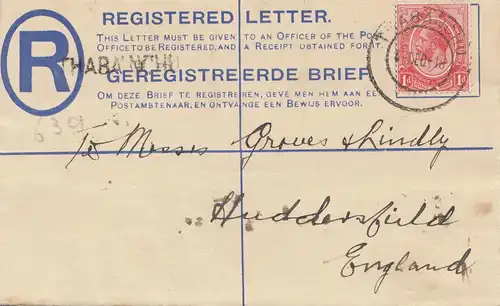 REGISTERED LETTER.
THIS LETTER MUST BE GIVEN TO AN OFFICER OF THE POST
OFFICE TO BE REGISTERED, AND A RECEIPT OBTAINED FOR IT.
R
THABA 'NCHU
GEREGISTREERDE BRIEF
OM DEZE BRIEF TE REGISTREREN, GEVE MEN HEM AAN EEN
POSTAMBTENAAR, EN ONTVANGE EEN BEWIJS ERVOOR.
1d 1d
639
To Messes Groves & Lindly
Huddersfield
England